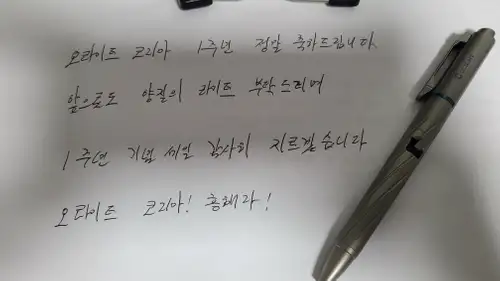 오라이트 코리아 1주년 정말 축하드립니다.
앞으로도 양질의 라이트 부탁드리며
1주년 기념 세일 감사히 지르겠습니다
오라이트 코리아! 흥해라!